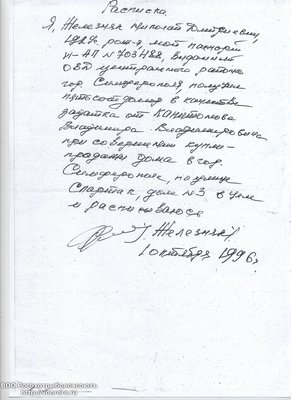 Расписка
Я, Железняк Николай Дмитриевич,
1927г. рож-я, мой паспорт
II-АП N703488, выданный
ОВД центрального района
гор. Симферополя, получил
пятьсот долларов в качестве
задатка от
Владимира Владимировича
при совершении купли-
продажи дома в гор.
Симферополе, по улице
Спартак, дом №3 в чем
и расписываюсь
/Железняк/
1 октября 1996г
http://vooro.ru